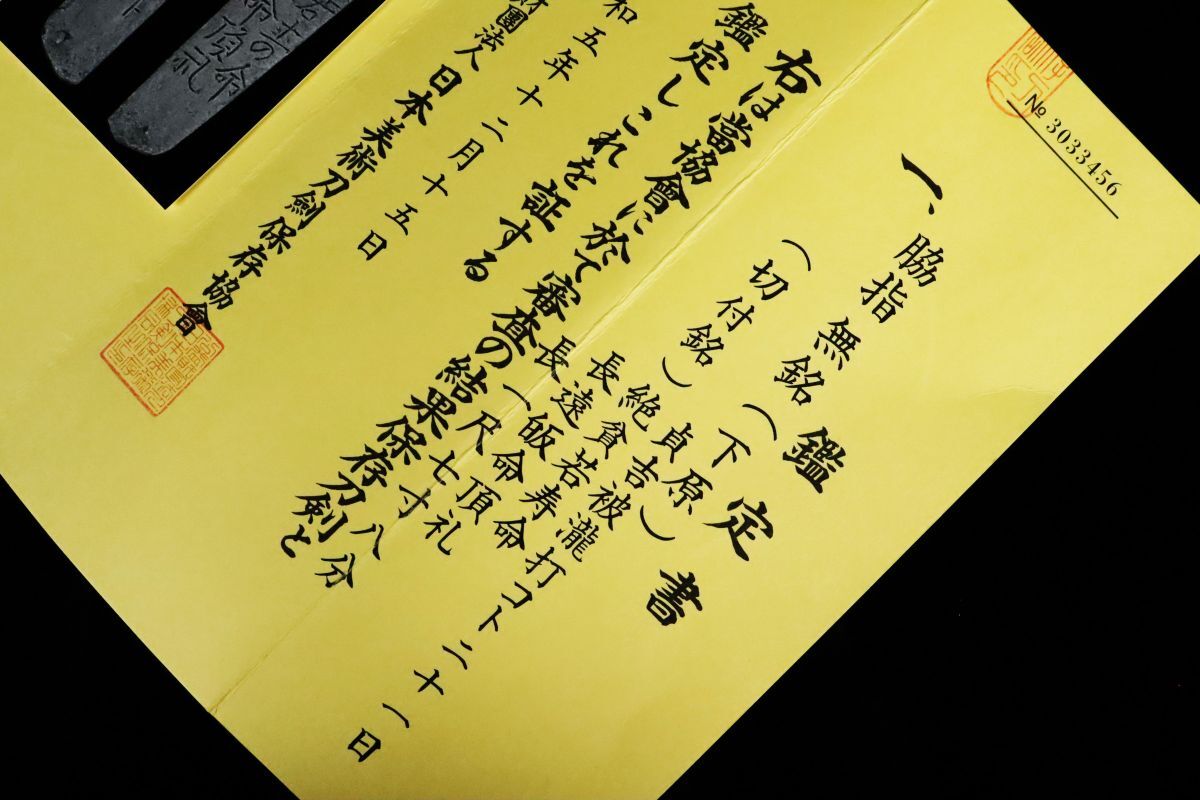 № 3033456
鑑定書
一、脇指 無銘(下原)
貞吉被瀧打コト二十一日
(切付銘)
絶貧若寿命
長遠皈命頂礼
長一尺七寸八分
右は當協會に於て審査の結果保存刀剣と
鑑定しこれを証する
和五年十二月十五日
財團法人日本美術刀劍保存協會
命頂礼